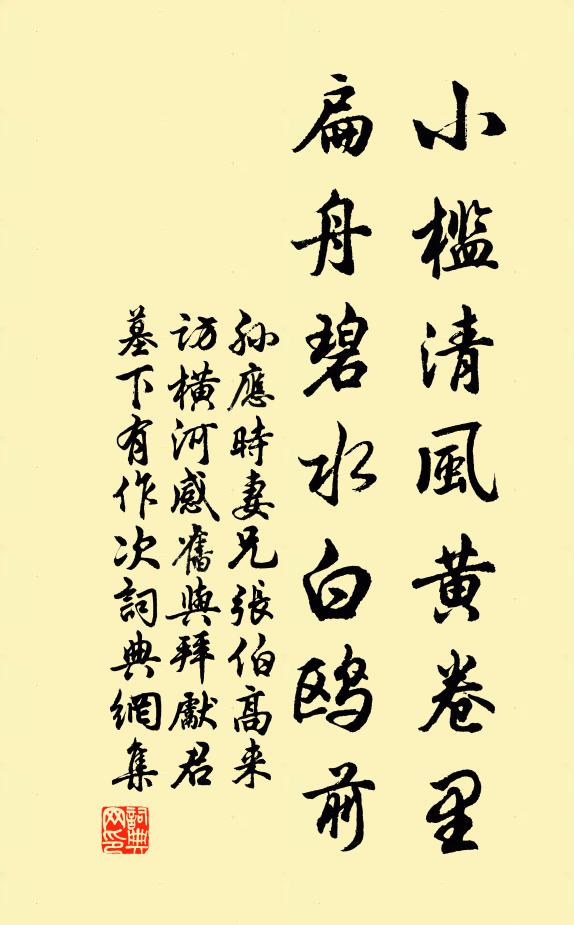 小檻清風黄卷里
扁舟碧水白鸥前
孙應時妻兄張伯高来
訪橫河感舊與拜獻君
墓下有作次詞典網集
詞典網印